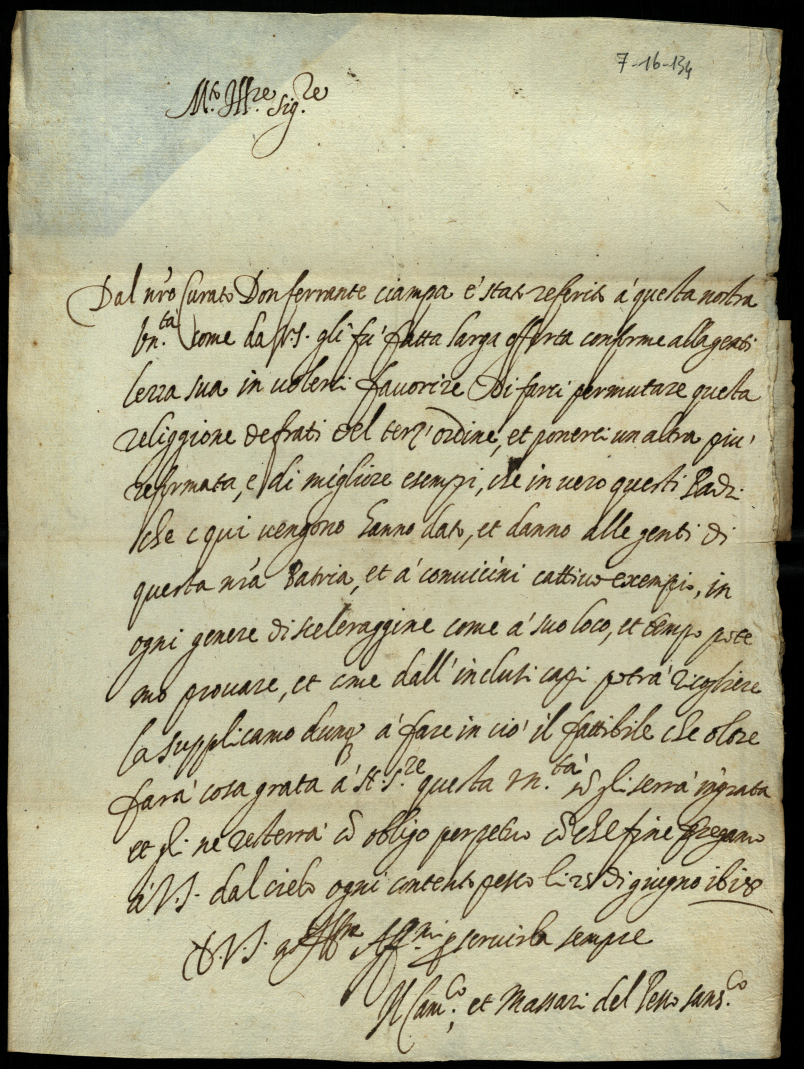 7-16-134
M.to Ill.re Sig.re
Dal n'ro Curato Don ferrante ciampa è stato referito á questa nostra
Un.ta come da V.S. gli fu' fatta larga offerta conforme alla genti
lezza sua in volerci favorire di farci permutare questa
religgione de frati del terz' ordine, et ponerci un altra piu'
reformata, e di megliore esempi, che in vero questi Padri
che qui vengono hanno dato, et danno alle genti di
questa n'ra Patria, et a' convicini cattivo exempio, in
ogni genere di sceleraggine come a' suo loco, et tempo pote
mo provare, et come dall' inclusi capi potra' ricogliere
la supplicamo dunq á fare in ciò il fattibile che oltre
fara' cosa grata á N.S.re questa Un.tá nō gli serra' ingrata
et gli ne resterra' cō obligo perpetuo cō che fine pregamo
á V.S. dal cielo ogni contento li 25 di giugno 1618
D. V.S. m.to Ill.re Aff.mi p servirla sempre
Il Cam.co, et Massari del sans.co